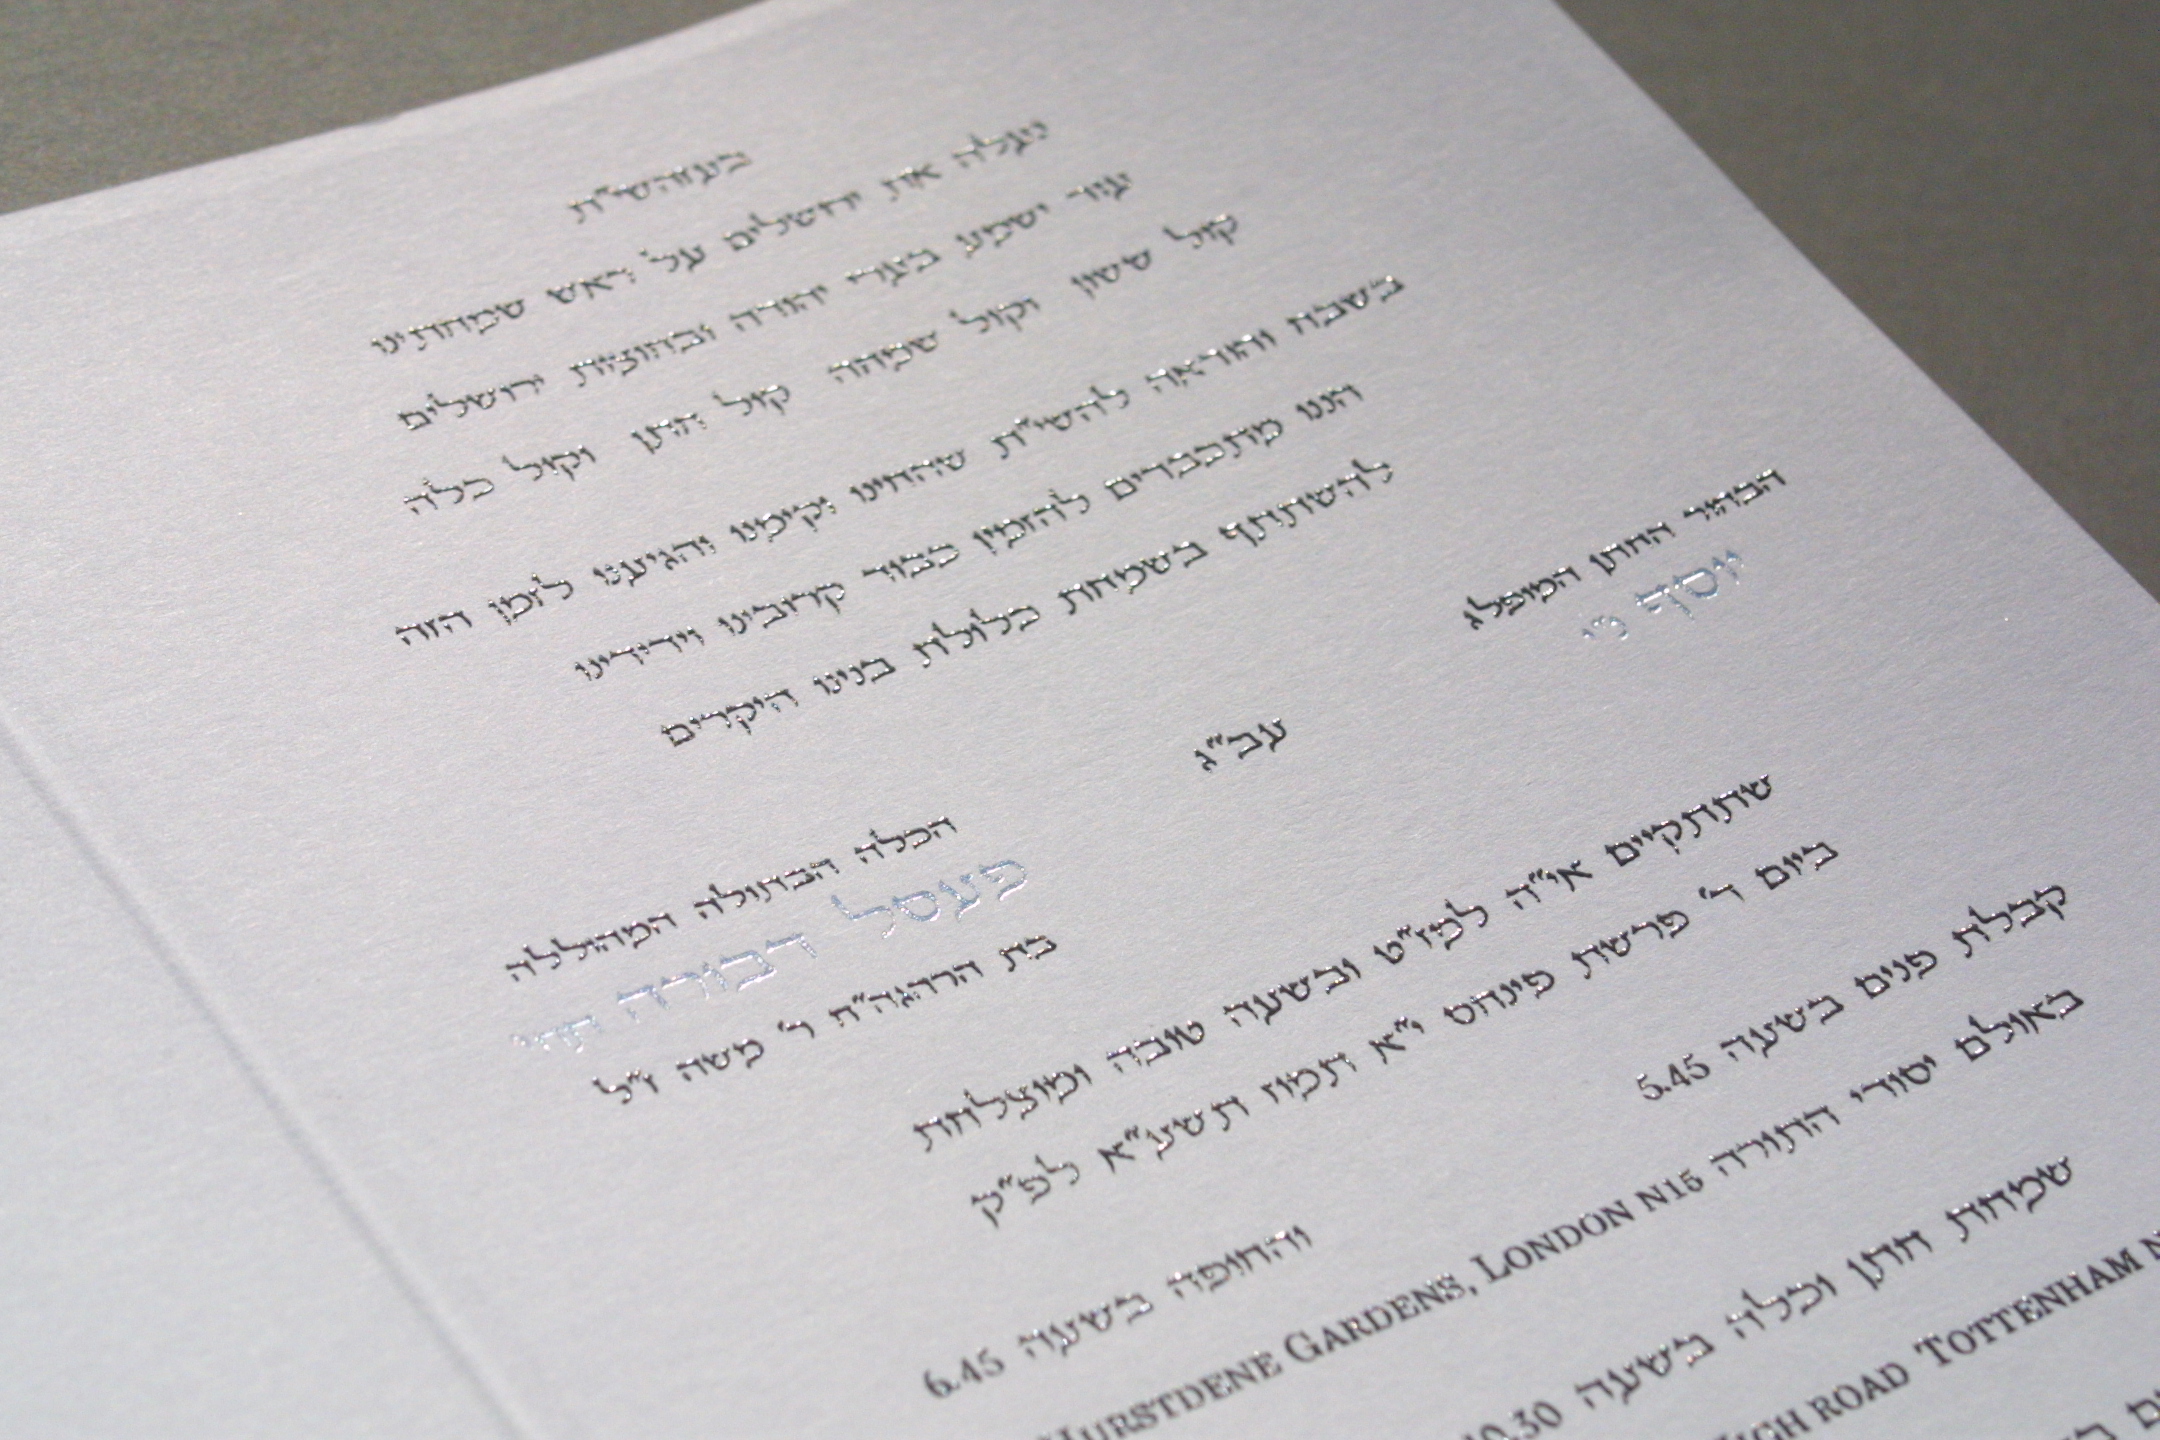 בעזהשי"ת
נעלה את ירושלים על ראש שמחתינו
עוד ישמע בערי יהודה ובחוצות ירושלים
קול ששון וקול שמחה קול חתן וקול כלה
בשבח והודאה להשי"ת שהחינו וקימנו והגיענו לזמן הזה
הננו מתכבדים להזמין כבוד קרובינו וידידינו
להשתתף בשמחת כלולת בנינו היקרים
הבחור החתן המופלג
יוסף ני'
עב"ג
הכלה הבתולה המהוללה
פעסל דבורה תחי'
בת הרהגה"ח ר' משה ז"ל
שתתקיים אי"ה למז"ט ובשעה טובה ומוצלחת
ביום ד' פרשת פינחס י"א תמוז תשע"א לפ"ק
קבלת פנים בשעה 5.45
והחופה בשעה 6.45
באולם יסודי התורה HURSTDENE GARDENS, LONDON N15
שמחת חתן וכלה בשעה 10.30
HIGH ROAD TOTTENHAM